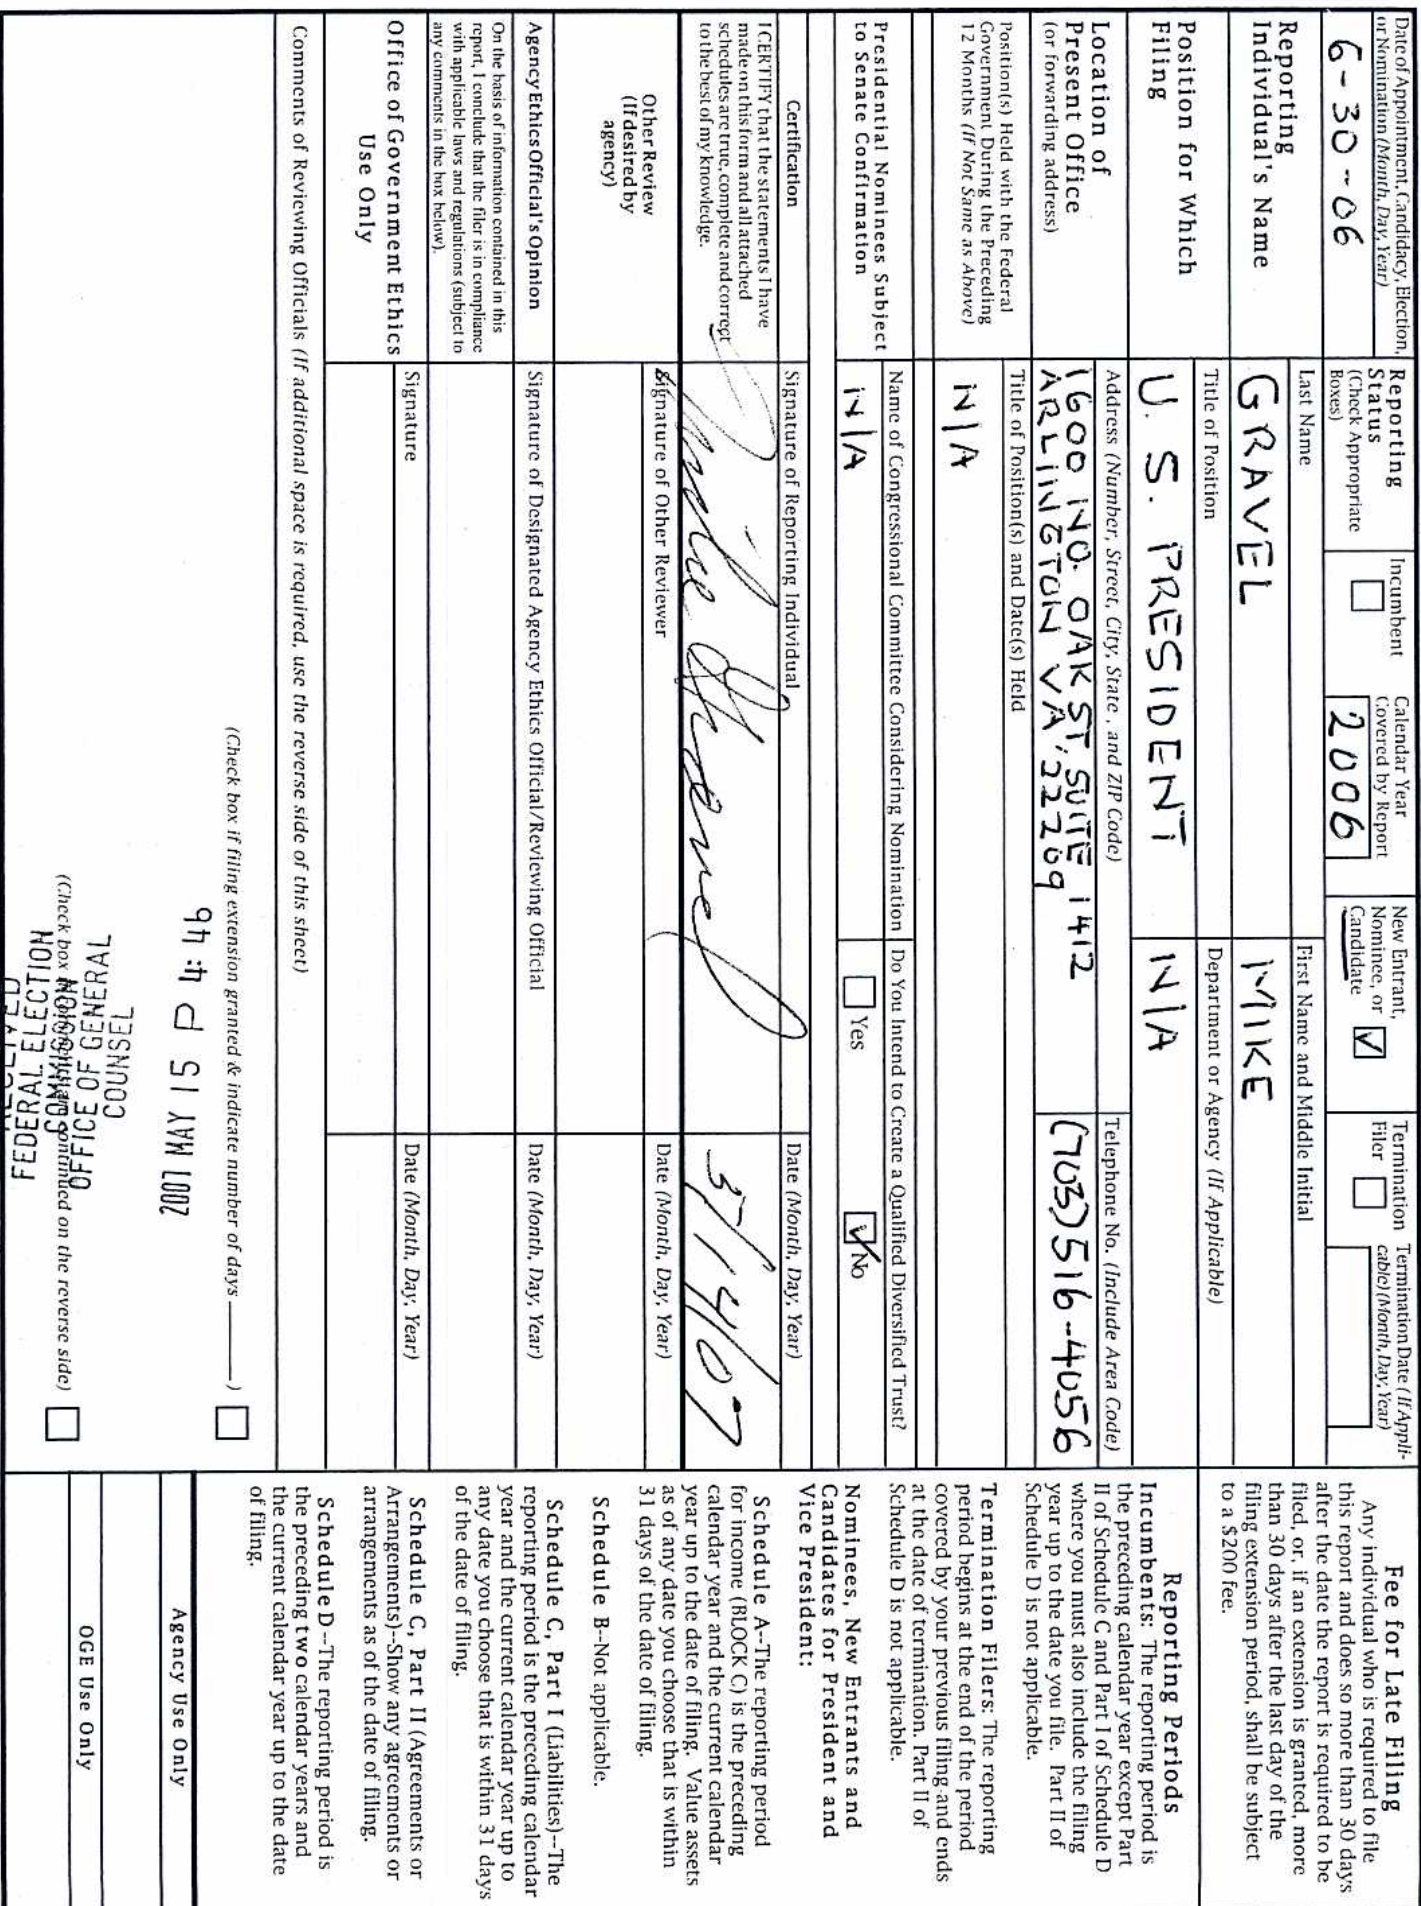 Date of Appointment, Candidacy, Election,
or Nomination (Month, Day, Year)
6-30-06
Reporting
Status
(Check Appropriate
Boxes)
Incumbent
Calendar Year
Covered by Report
2006
New Entrant,
Nominee, or
Candidate
Termination
Filer
Termination Date (If Appli-
cable) (Month, Day, Year)
Reporting
Individual's Name
Last Name
GRAVEL
First Name and Middle Initial
MIKE
Position for Which
Filing
Title of Position
U. S. PRESIDENT
Department or Agency (If Applicable)
N/A
Location of
Present Office
(or forwarding address)
Address (Number, Street, City, State , and ZIP Code)
1600 NO. OAK ST, SUITE 1412
ARLINGTON VA, 22209
Telephone No. (Include Area Code)
(703) 516-4056
Position(s) Held with the Federal
Government During the Preceding
12 Months (If Not Same as Above)
Title of Position(s) and Date(s) Held
N/A
Presidential Nominees Subject
to Senate Confirmation
Name of Congressional Committee Considering Nomination
N/A
Do You Intend to Create a Qualified Diversified Trust?
Yes
No
Certification
I CERTIFY that the statements I have
made on this form and all attached
schedules are true, complete and correct
to the best of my knowledge.
Signature of Reporting Individual
Mike Gravel
Date (Month, Day, Year)
5/14/07
Other Review
(If desired by
agency)
Signature of Other Reviewer
Date (Month, Day, Year)
Agency Ethics Official's Opinion
On the basis of information contained in this
report, I conclude that the filer is in compliance
with applicable laws and regulations (subject to
any comments in the box below).
Signature of Designated Agency Ethics Official/Reviewing Official
Date (Month, Day, Year)
Office of Government Ethics
Use Only
Signature
Date (Month, Day, Year)
Comments of Reviewing Officials (If additional space is required, use the reverse side of this sheet)
(Check box if filing extension granted & indicate number of days ______)
(Check box if comments are continued on the reverse side)
2007 MAY 15 P 4: 46
COUNSEL
OFFICE OF GENERAL
COMMISSION
FEDERAL ELECTION
RECEIVED
Fee for Late Filing
Any individual who is required to file
this report and does so more than 30 days
after the date the report is required to be
filed, or, if an extension is granted, more
than 30 days after the last day of the
filing extension period, shall be subject
to a $200 fee.
Reporting Periods
Incumbents: The reporting period is
the preceding calendar year except Part
II of Schedule C and Part I of Schedule D
where you must also include the filing
year up to the date you file. Part II of
Schedule D is not applicable.
Termination Filers: The reporting
period begins at the end of the period
covered by your previous filing and ends
at the date of termination. Part II of
Schedule D is not applicable.
Nominees, New Entrants and
Candidates for President and
Vice President:
Schedule A--The reporting period
for income (BLOCK C) is the preceding
calendar year and the current calendar
year up to the date of filing. Value assets
as of any date you choose that is within
31 days of the date of filing.
Schedule B--Not applicable.
Schedule C, Part I (Liabilities)--The
reporting period is the preceding calendar
year and the current calendar year up to
any date you choose that is within 31 days
of the date of filing.
Schedule C, Part II (Agreements or
Arrangements)--Show any agreements or
arrangements as of the date of filing.
Schedule D--The reporting period is
the preceding two calendar years and
the current calendar year up to the date
of filing.
Agency Use Only
OGE Use Only